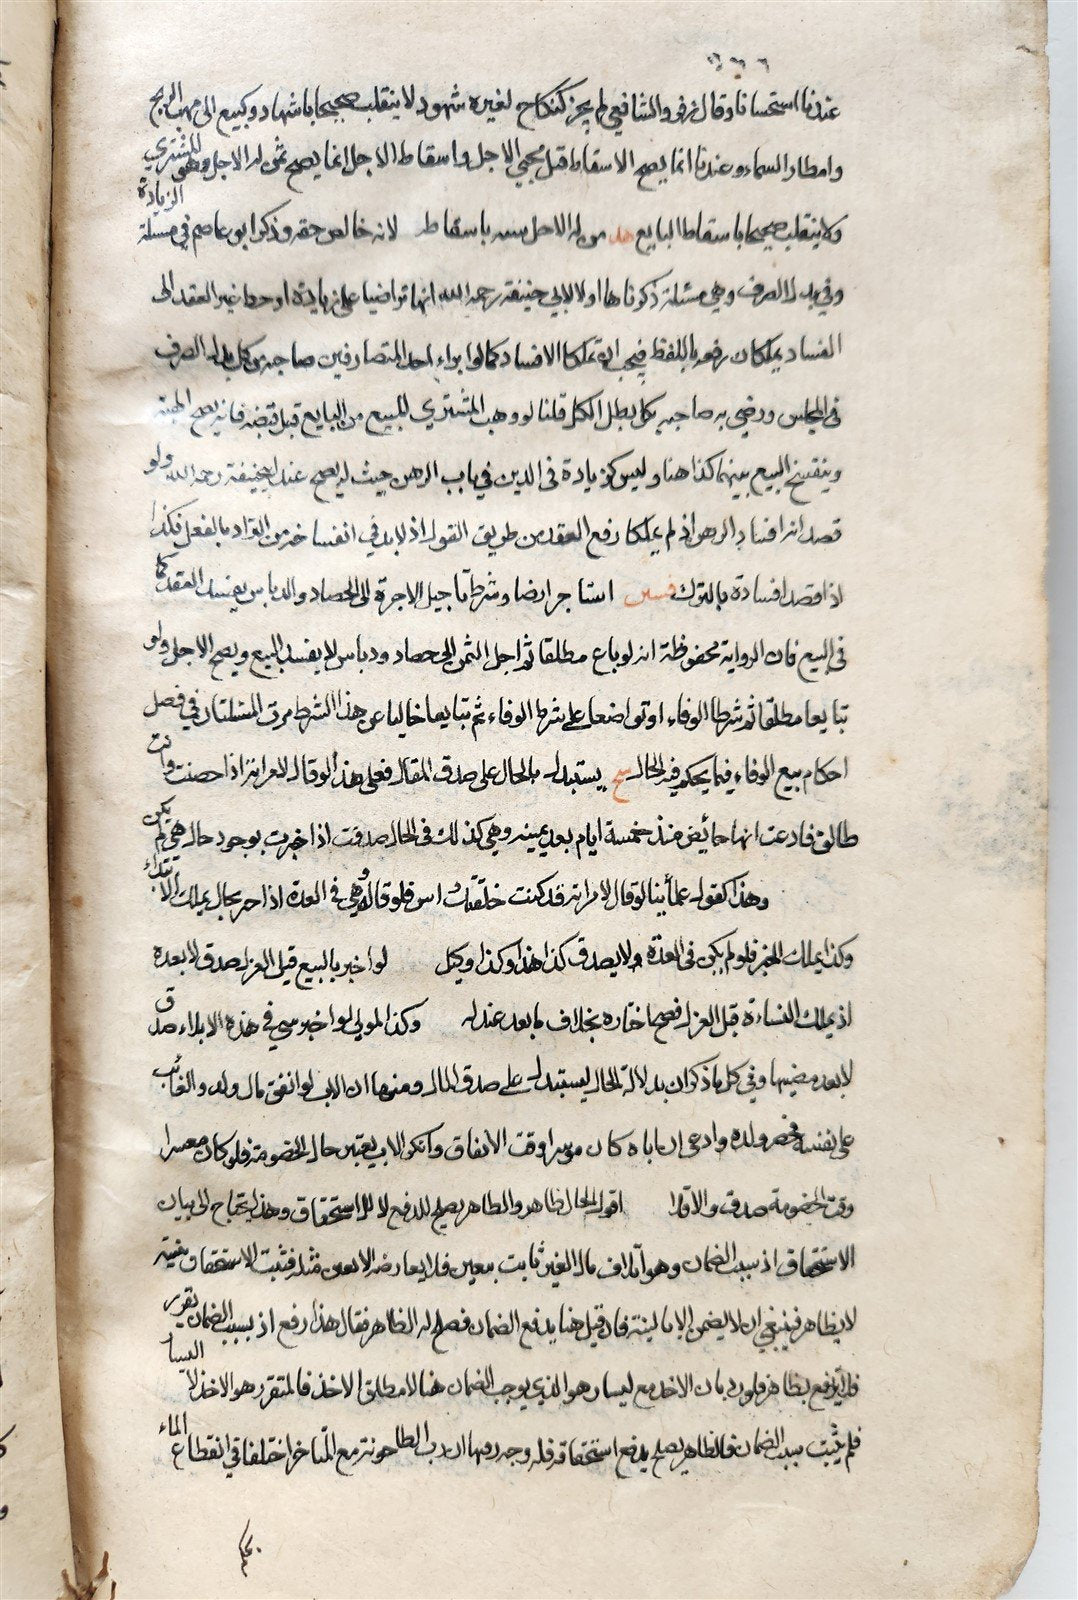 عندنا استحسانا وقال زفر والشافعي لم يجز كنكاح لغيره شهود لا ينقلب صحيحا باشهاد وكبيع الى مهب الريح
وامطار السماء وعندنا انما يصح الاسقاط قبل مجيئ الاجل واسقاط الاجل انما يصح ممن له الاجل وهو للمشتري
ولا ينقلب صحيحا باسقاط البايع من له الاجل باسقاط لانه خالص حقه وذكر ابو عاصم في مسئلة الزيادة
وفي بدل الصرف وهي مسئلة ذكرناها اولا لابي حنيفة رحمه الله انهما تراضيا على زيادة او حط غير العقد الى
الفساد يملكان رفعه باللفظ فيجب ان يملكا الافساد كما لو ابراء احد المتصارفين صاحبه من كل بدل الصرف
في المجلس ورضي به صاحبه بكل يبطل الكل قلنا لو وهب المشتري المبيع من البايع قبل قبضه فانه يصح الهبة
وينفسخ البيع بينهما كذا هنا وليس كزيادة في الدين في باب الرهن حيث لم يصح عند ابيحنيفة رحمه الله ولو
قصد انه افساد الرهن اذ لم يملكا رفع العقد من طريق القول اذ لا بد في انفساخه من التراد بالفعل فكذا
اذا قصد افسادة بالترك استاجر ارضا وشرط تاجيل الاجرة الى الحصاد والدياس يفسد العقد كما
في البيع فان الرواية محفوظة انه لو باع مطلقا ثم اجل الثمن الى حصاد ودياس لا يفسد البيع ويصح الاجل ولو
تبايعا مطلقا ثم شرطا الوفاء او تواضعا على شرط الوفاء ثم تبايعا خاليا عن هذا الشرط مرت المسئلتان في فصل
احكام بيع الوفاء فيما يحكم فيه الحال يستبدل بالحال على صدق المقال فعلى هذا لو قال لامراته اذا حضت وانت
طالق فادعت انها حائض منذ خمسة ايام بعد يمينه وهي كذلك في الحال صدقت اذا خبرت بوجود حال هي لم يكن
وهذا كقول علمائنا لو قال لامراته قد كنت طلقتك امس فلو قاله وهي في العدة اذا اخبر بحال يملك الابتداء
وكذا يملك الخبر فلو لم يكن في العدة ولا يصدق كذا هذا وكذا وكيل لو اخبر بالبيع قبل العزل صدق لا بعده
اذ يملك انشاءه قبل العزل فصح اخباره بخلاف ما بعد عنده وكذا المولي لو اخبر في مدة الايلاء صدق
لا بعد مضيها وفي كل ما ذكر ان بدلالة الحال يستبدل على صدق المال ومنها ان الاب لو انفق مال ولده والغائب
على نفسه فحضر ولده وادعى ان اباه كان موسرا وقت الانفاق وانكر الاب يعتبر حال الخصومة فلو كان معسرا
وقت الخصومة صدق والا فلا اقول الحال ظاهر والظاهر يصلح للدفع لا للاستحقاق وهذا يحتاج الى بيان
الاستحقاق اذ سبب الضمان وهو اتلاف مال الغير ثابت بيقين فلا يعارضه الا يقين مثله فثبت الاستحقاق بيقينه
لا بظاهر فينبغي ان لا يضمن الا بالبينة فان قيل هنا يدفع الضمان فصلح له الظاهر فقال هذا رفع اذ بسبب الضمان تقرر
فلا يرفع بظاهر فلو رد بان الاخذ مع اليسار هو الذي يوجب الضمان هنا لا مطلق الاخذ فالمتقرر هو الاخذ لا اليسار
فلم يثبت سبب الضمان فالظاهر يصلح لدفع استحقاقه فله وجه ومنها ان رب الطاحونة مع المتاخر اختلفا في انقطاع الماء